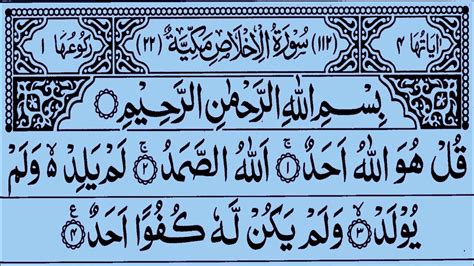 اٰيَاتُهَا ٤ (١١٢) سُوْرَةُ الْاِخْلَاصِ مَكِّيَّةٌ (٢٢) رُكُوْعُهَا ١
بِسْمِ اللّٰهِ الرَّحْمٰنِ الرَّحِيْمِ
قُلْ هُوَ اللّٰهُ اَحَدٌ ۚ ١ اَللّٰهُ الصَّمَدُ ۚ ٢ لَمْ يَلِدْ ۙ٥ وَلَمْ
يُوْلَدْ ۙ ٣ وَلَمْ يَكُنْ لَّهٗ كُفُوًا اَحَدٌ ٤ ع